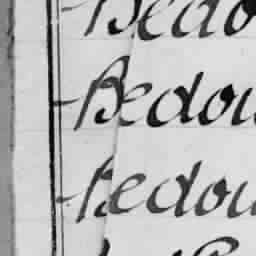 Bedo
Bedou
Bedou